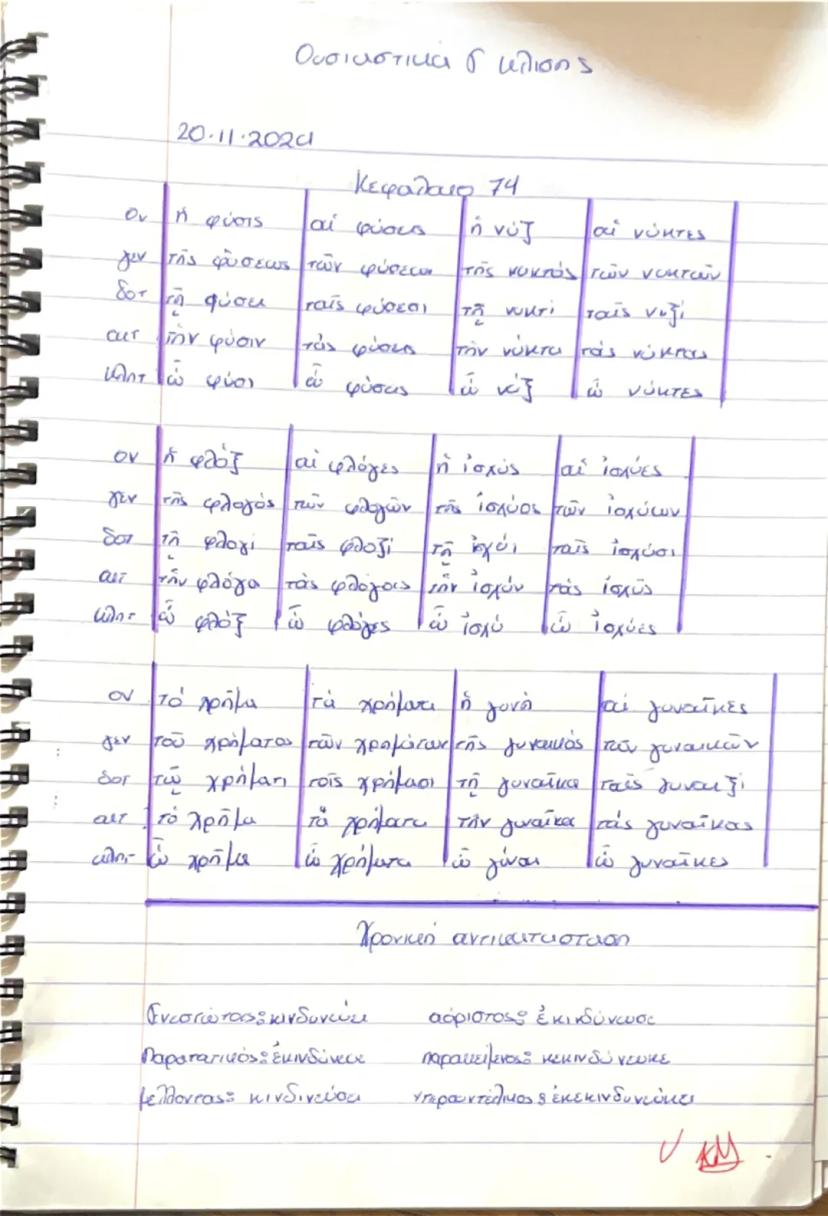 Ουσιαστικά γ κλισης
20.11.2024
Κεφαλαιο 74
ον ἡ φύσις αἱ φύσεις ἡ νύξ αἱ νύκτες
γεν τῆς φύσεως τῶν φύσεων τῆς νυκτός τῶν νυκτῶν
δοτ τῇ φύσει ταῖς φύσεσι τῇ νυκτί ταῖς νυξί
αιτ τὴν φύσιν τὰς φύσεις τὴν νύκτα τὰς νύκτας
κλητ ὦ φύσι ὦ φύσεις ὦ νύξ ὦ νύκτες
ον ἡ φλόξ αἱ φλόγες ἡ ἰσχύς αἱ ἰσχύες
γεν τῆς φλογός τῶν φλογῶν τῆς ἰσχύος τῶν ἰσχύων
δοτ τῇ φλογί ταῖς φλοξί τῇ ἰσχύι ταῖς ἰσχύσι
αιτ τὴν φλόγα τὰς φλόγας τὴν ἰσχύν τὰς ἰσχῦς
κλητ ὦ φλόξ ὦ φλόγες ὦ ἰσχύ ὦ ἰσχύες
ον τό χρῆμα τὰ χρήματα ἡ γυνή αἱ γυναῖκες
γεν τοῦ χρήματος τῶν χρημάτων τῆς γυναικός τῶν γυναικῶν
δοτ τῷ χρήματι τοῖς χρήμασι τῇ γυναῖκα ταῖς γυναιξί
αιτ τό χρῆμα τὰ χρήματα τὴν γυναῖκα τάς γυναῖκας
κλητ ὦ χρῆμα ὦ χρήματα ὦ γύναι ὦ γυναῖκες
Χρονική αντικατασταση
Ενεστώτας: κινδυνεύει αόριστος: ἐκινδύνευσε
Παρατατικός: ἐκινδύνευε παρακείμενος: κεκινδύνευκε
μελλοντας: κινδινεύσει υπερσυντέλικος: ἐκεκινδυνεύκει
ΚΜ